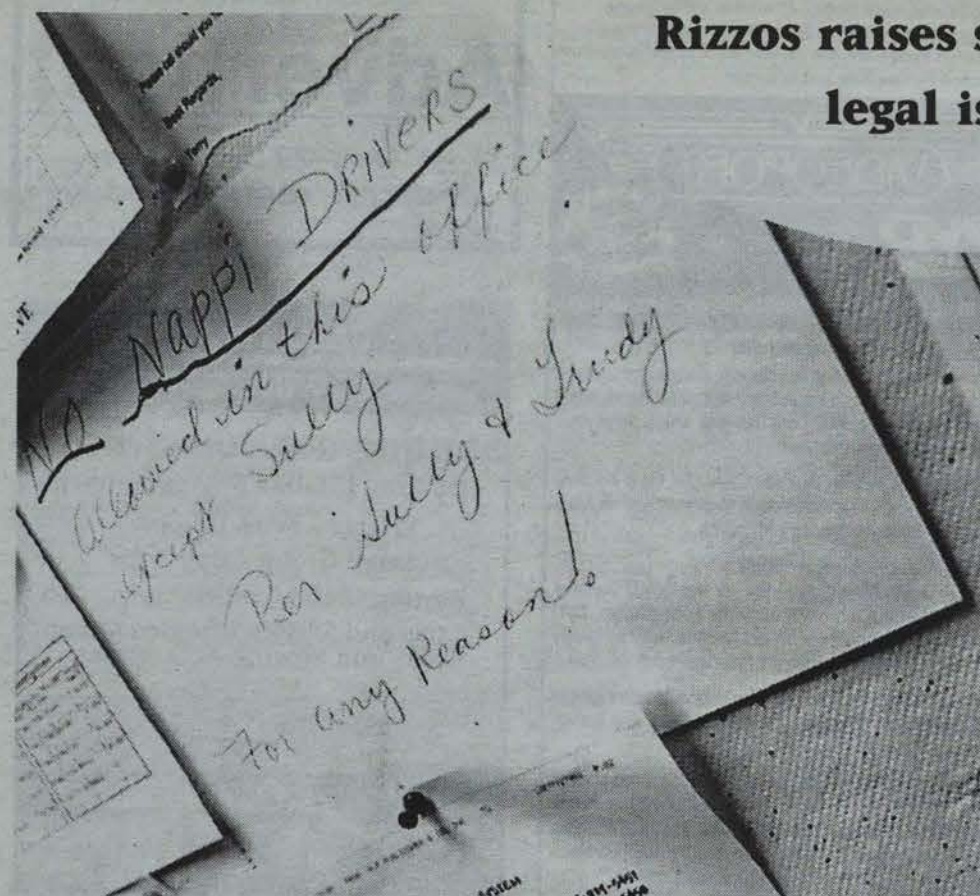 Rizzos raises
legal
Please call should you
Best Regards,
Tony
NO NAPPI DRIVERS
allowed in this office
except Sully
Per Sully & Trudy
For any Reason!